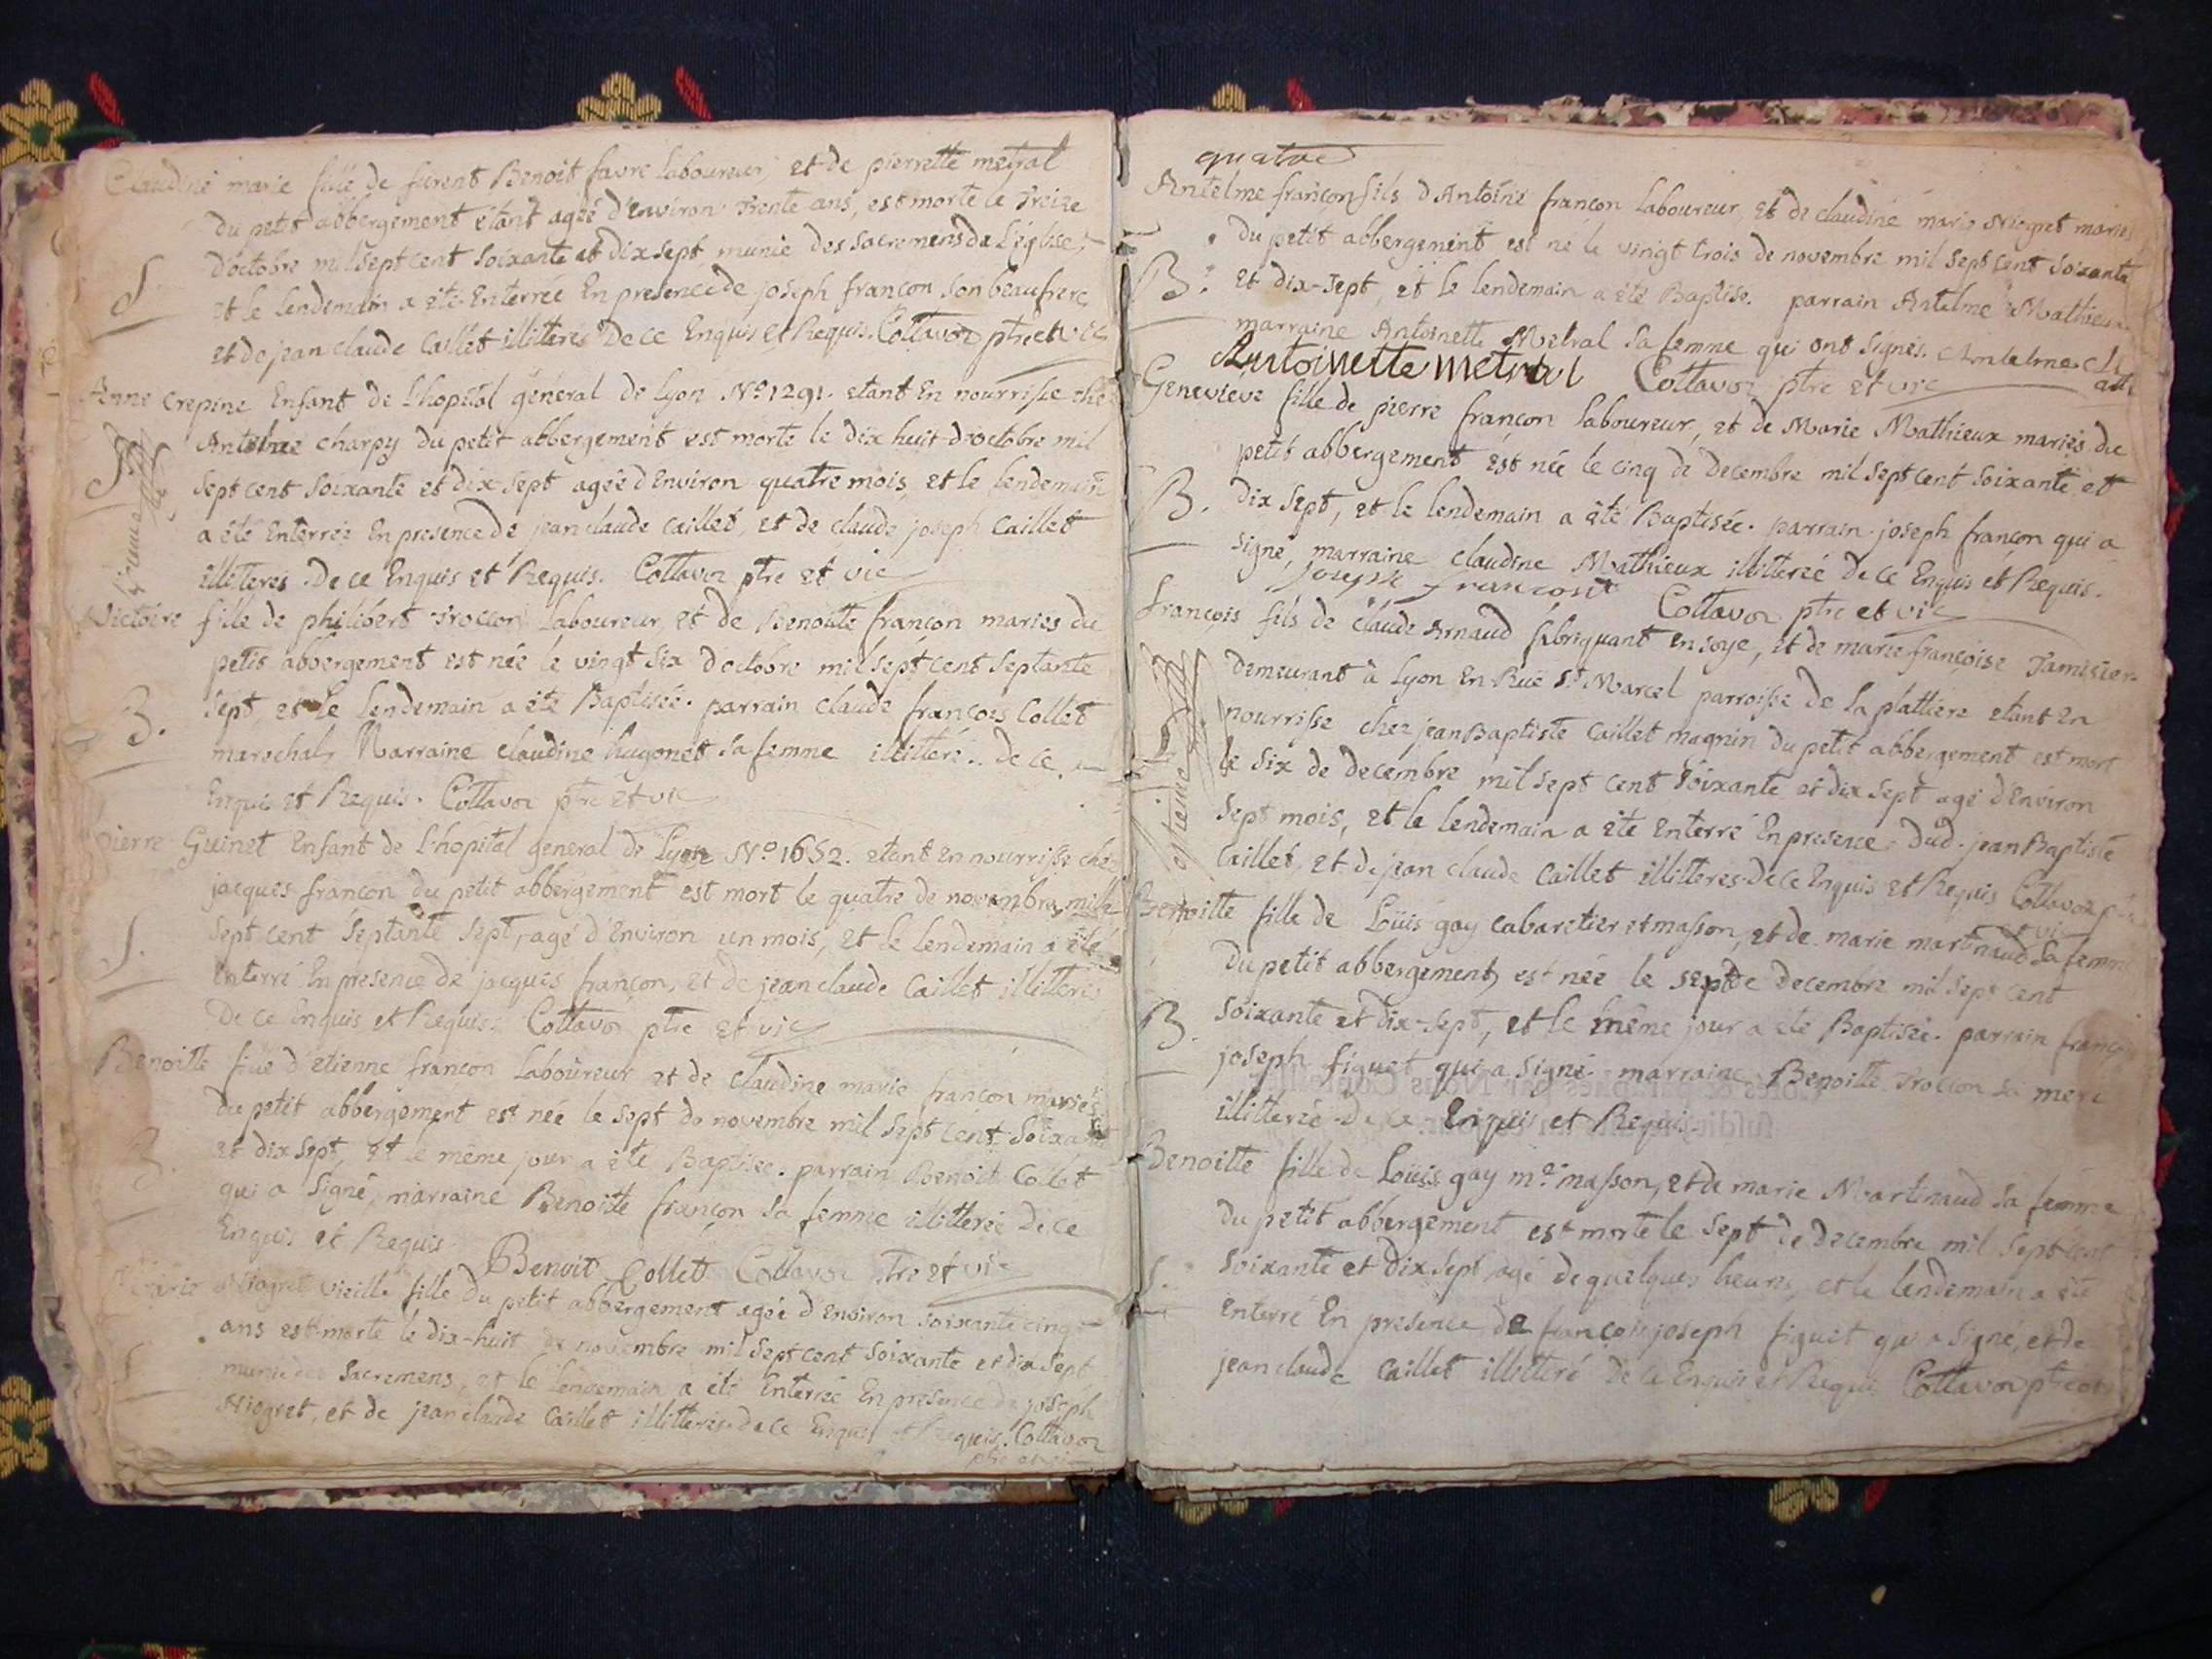 Claudine marie fille de furent Benoit favre laboureur, et de pierrette metral
du petit abbergement étant agée d'environ Trente ans, est morte le Treize
d'octobre mil sept cent soixante et dix sept munie des sacremens de L'église,
S.
et le lendemain a été Enterrée En presence de joseph françon son beaufrere,
et de jean claude Caillet illitteres De ce Enquis et Requis. Collavoz ptre et vic
Anne crepine Enfant de L'hopital général de Lyon N.º 1291. etant En nourrisse chez
Antelme charpy du petit abbergement est morte le dix huit d'octobre mil
S
sept cent soixante et dix sept agée d'Environ quatre mois, et le lendemain
a été Enterrée En presence de jean claude Caillet, et de claude joseph Caillet
illiteres De ce Enquis et Requis. Collavoz ptre et vic
Victoire fille de philibert Troccon Laboureur, et de Benoitte françon mariés du
petit abbergement est née le vingt six d'octobre mil sept cent septante
sept, et le lendemain a été Baptisée. parrain claude françois Collet
B.
marechal, Marraine claudine hugonet sa femme illitteré.. de ce
Enquis et Requis. Collavoz ptre et vic
pierre Guinet Enfant de L'hopital general de Lyon N.º 1652. etant en nourrisse chez
jacques françon du petit abbergement est mort le quatre de novembre mil
sept cent septante sept, agé d'Environ un mois, et le lendemain a été
S.
Enterré En presence de jacques françon, et de jean claude Caillet illitterés
De ce Enquis et Requis. Collavoz ptre et vic
Benoitte fille d'etienne françon Laboureur et de claudine marie françon mariés
du petit abbergement est née le sept de novembre mil sept cent soixante
et dix sept, et le même jour a été Baptisée. parrain Benoit Collet
B.
qui a signé, marraine Benoitte françon sa femme illitterée De ce
Enquis et Requis.
Benoit Collet Collavoz ptre et vic
Marie Niogret vieille fille du petit abbergement agée d'environ soixante cinq
ans est morte le dix-huit de novembre mil sept cent soixante et dix sept
S
munie des sacremens, et le lendemain a été Enterrée En presence de joseph
Niogret, et de jean claude Caillet illitterés de ce Enquis et Requis. Collavoz
ptre et vic
quatre
Antelme françon fils d'Antoine françon laboureur, et de claudine marie Niogret mariés
du petit abbergement est né le vingt trois de novembre mil sept cent soixante
B.
et dix-sept, et le lendemain a été Baptisé. parrain Antelme Mathieux
marraine Antoinette Metral sa femme qui ont signés.
Antoinette metral Collavoz ptre et vic
Genevieve fille de pierre françon laboureur, et de Marie Mathieux mariés du
petit abbergement est née le cinq de decembre mil sept cent soixante et
B.
dix sept, et le lendemain a été Baptisée. parrain joseph françon qui a
signé, marraine claudine Mathieux illitterée de ce Enquis et Requis.
joseph francont Collavoz ptre et vic
françois fils de claude Arnaud fabriquant en soye, et de marie françoise Tamisier
demeurant à Lyon En Rue St. Marcel parroisse de la plattiere etant En
nourrisse chez jean Baptiste Caillet magnin du petit abbergement est mort
S
le six de decembre mil sept cent soixante et dix sept agé d'Environ
sept mois, et le lendemain a été Enterré En presence dud. jean Baptiste
Caillet, et de jean claude Caillet illitteres de ce Enquis et Requis Collavoz ptre
et vic
Benoitte fille de Loüis gay cabaretier et masson, et de marie martinaud sa femme
du petit abbergement, est née le sept de decembre mil sept cent
B.
soixante et dix-sept, et le même jour a été Baptisée. parrain françois
joseph figuet qui a signé marraine Benoitte Troccon sa mere
illitterée de ce Enquis et Requis.
Benoitte fille de Loüis gay mº. masson, et de marie Martinaud sa femme
du petit abbergement est morte le sept de decembre mil sept cent
soixante et dix sept, agé de quelques heures, et le lendemain a été
S.
Enterré En presence de françois joseph figuet qui a signé, et de
jean claude Caillet illitteré De ce Enquis et Requis Collavoz ptre et